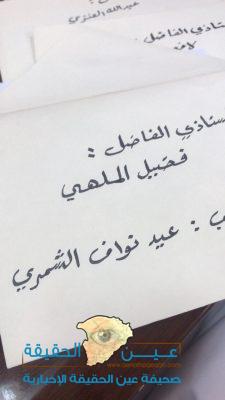 عبدالله العنزي
ستاذي الفاضل :
ستاذي الفاضل :
فضيل الملهي
ب : عيد نواف الشمري
عين الحقيقة
صحيفة عين الحقيقة الإخبارية